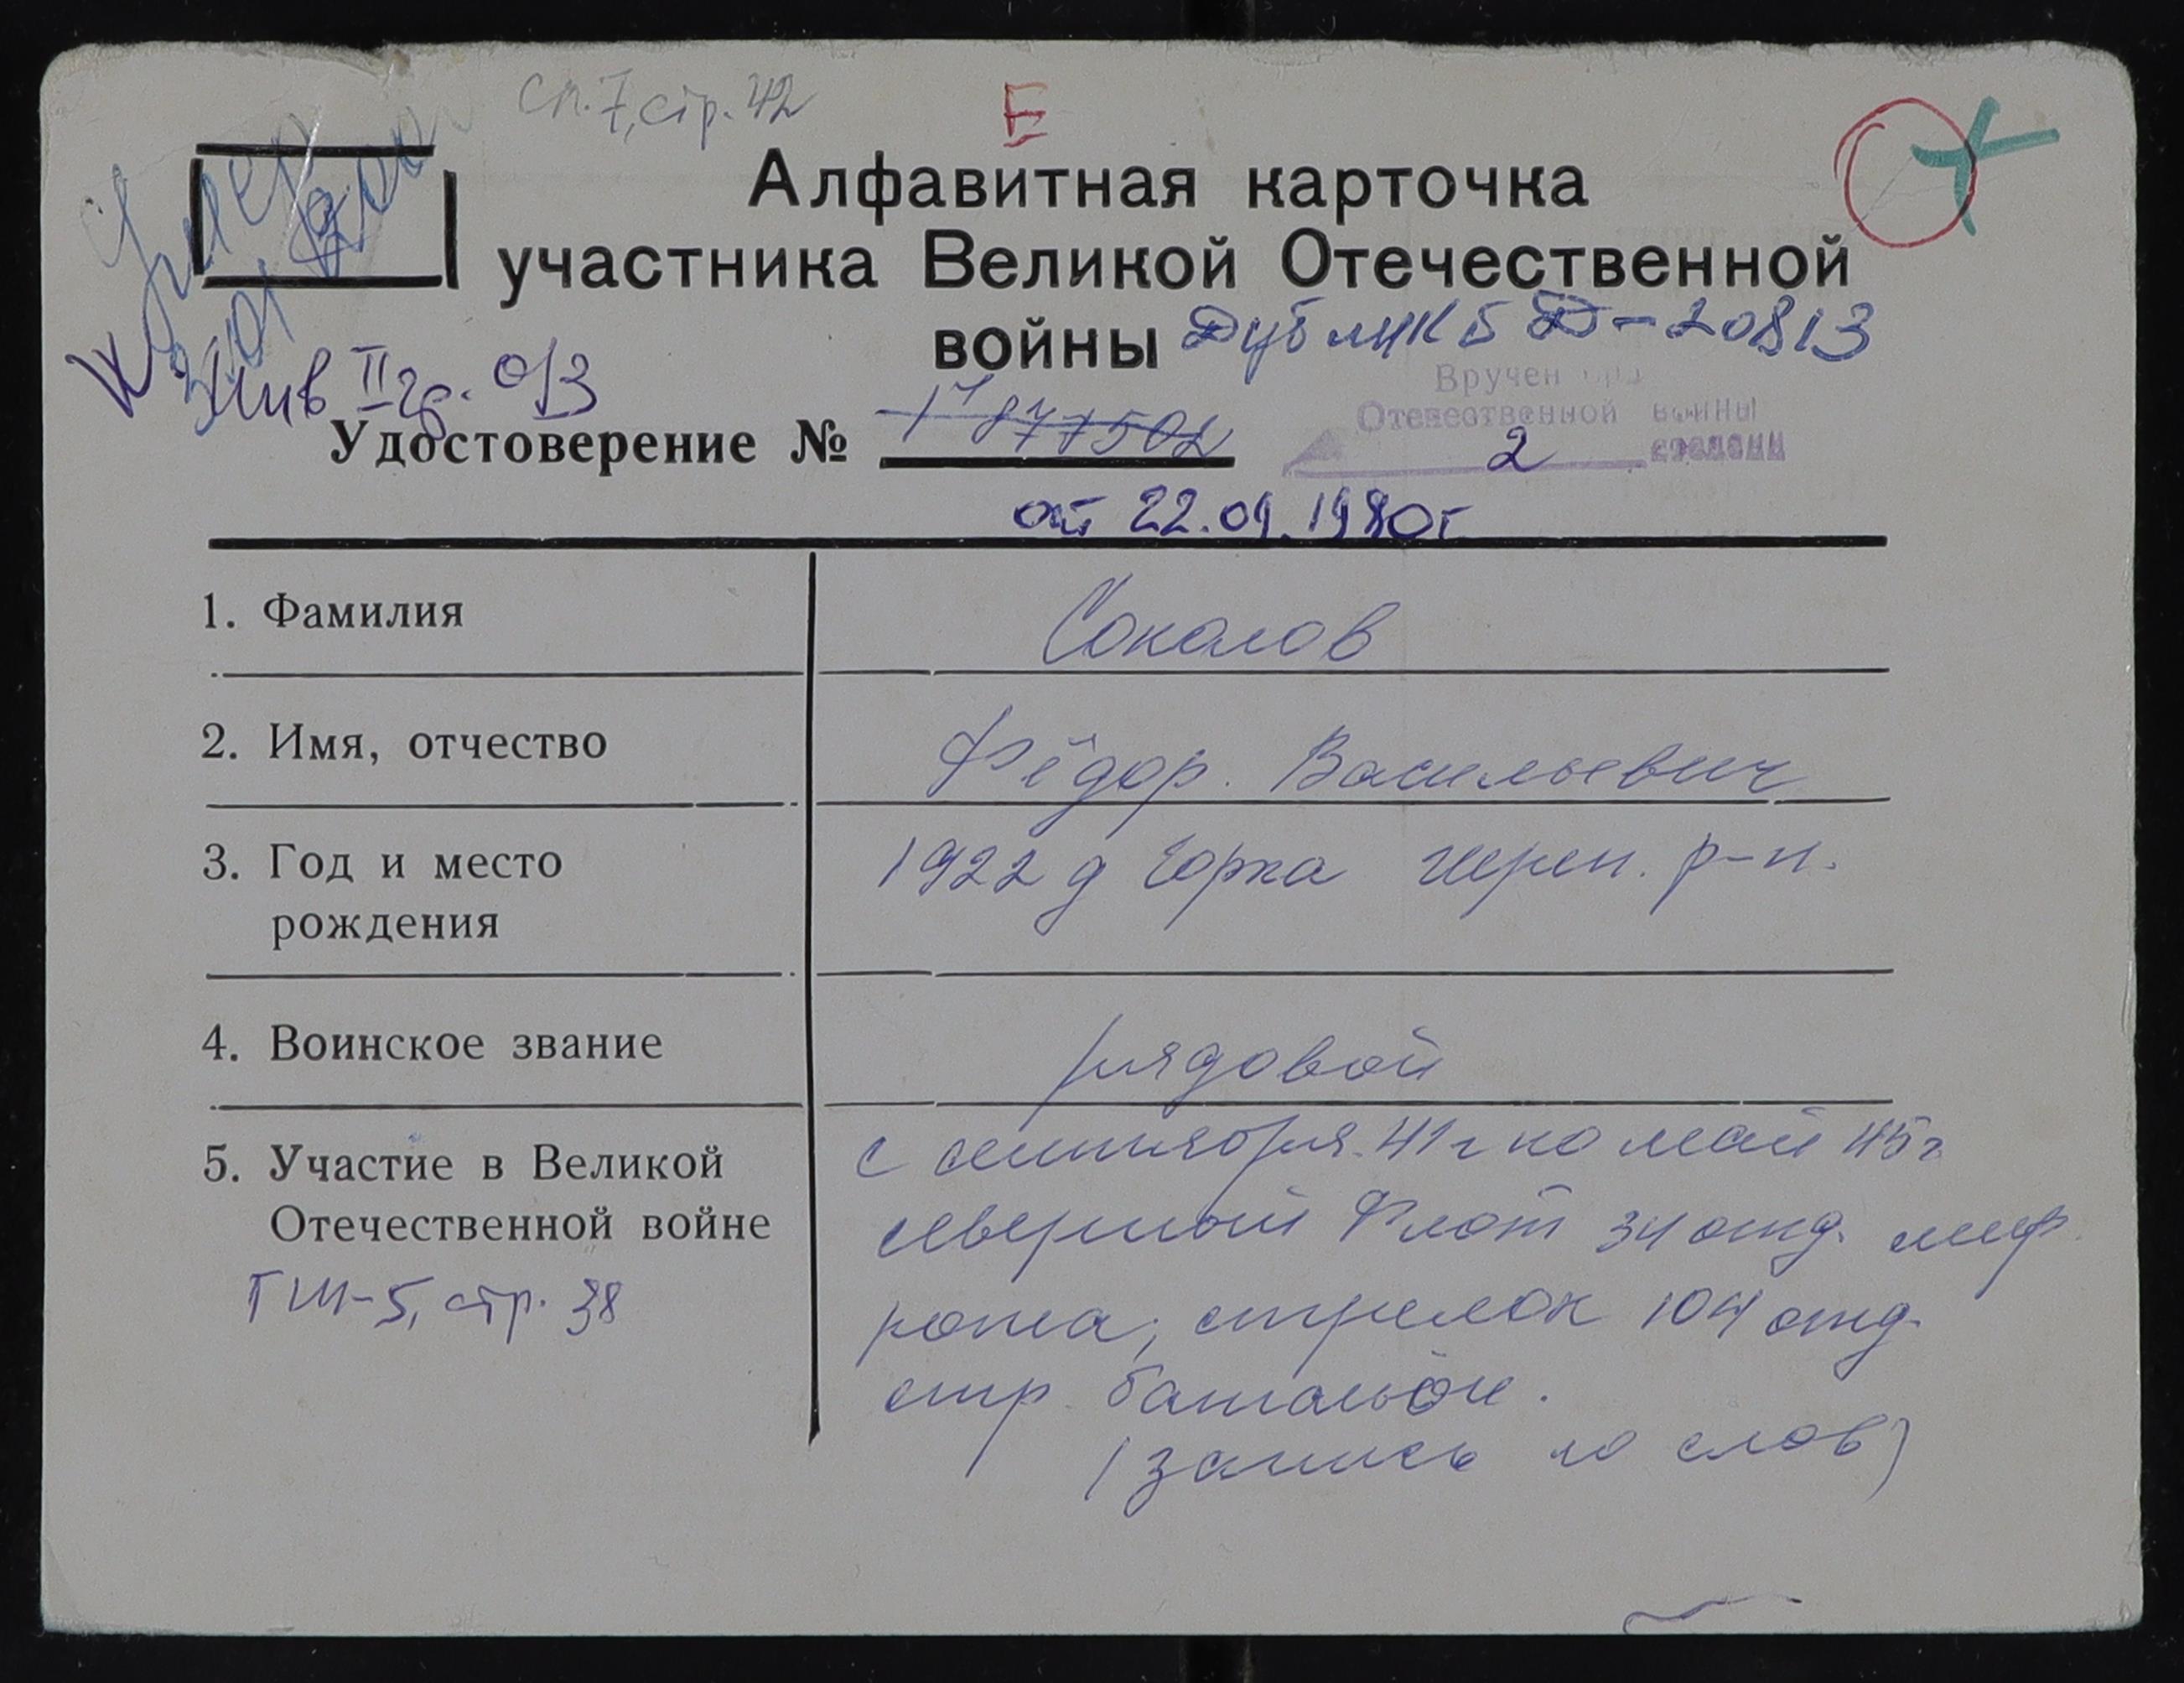 сп. 7, стр. 42
Е
Алфавитная карточка
участника Великой Отечественной
войны Дубликат Д-20813
Умер
Инв II гр. О/З
Вручен
Отечественной войны
2 степени
Удостоверение № 1877502
от 22.09.1980г
1. Фамилия
Соколов
2. Имя, отчество
Фёдор. Васильевич
3. Год и место
рождения
1922 д Горка Череп. р-н.
4. Воинское звание
рядовой
5. Участие в Великой
Отечественной войне
ГШ-5, стр. 38
с сентября 41г по май 45г
северный Флот 34 отд.
рота, стрелок 104 отд.
стр батальон.
(запись со слов)